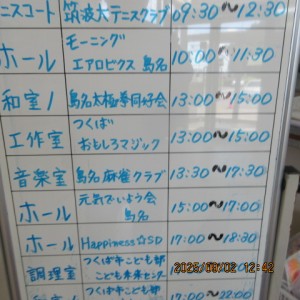 ニスコート 筑波大テニスクラブ 09:30〜12:30
ホール モーニング
エアロビクス 島名 10:00〜11:30
和室1 島名太極拳同好会 13:00〜15:00
工作室 つくば
おもしろマジック 13:00〜15:00
音楽室 島名麻雀クラブ 13:30〜17:30
ホール 元気でいよう会
島名 15:00〜17:00
ホール Happiness☆SD 17:00〜18:30
調理室 つくば市こども部
こども未来センター
つくば市こども部
22:00
12:42